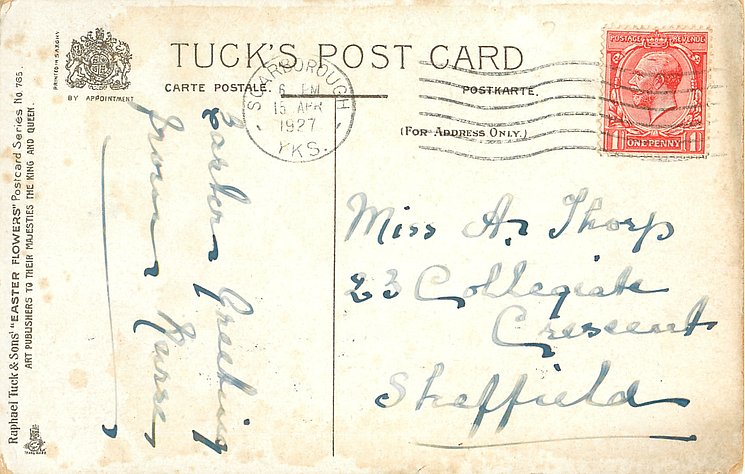 TUCK'S POST CARD
CARTE POSTALE.
POSTKARTE.
(FOR ADDRESS ONLY.)
PRINTED IN SAXONY
BY APPOINTMENT
SCARBOROUGH
6 PM
15 APR
1927
YKS.
POSTAGE REVENUE
1 ONE PENNY 1
Raphael Tuck & Sons' "EASTER FLOWERS" Postcard Series No 765.
ART PUBLISHERS TO THEIR MAJESTIES THE KING AND QUEEN.
Easter Greeting
from
Miss A. Thorp
23 Collegiate
Crescent
Sheffield